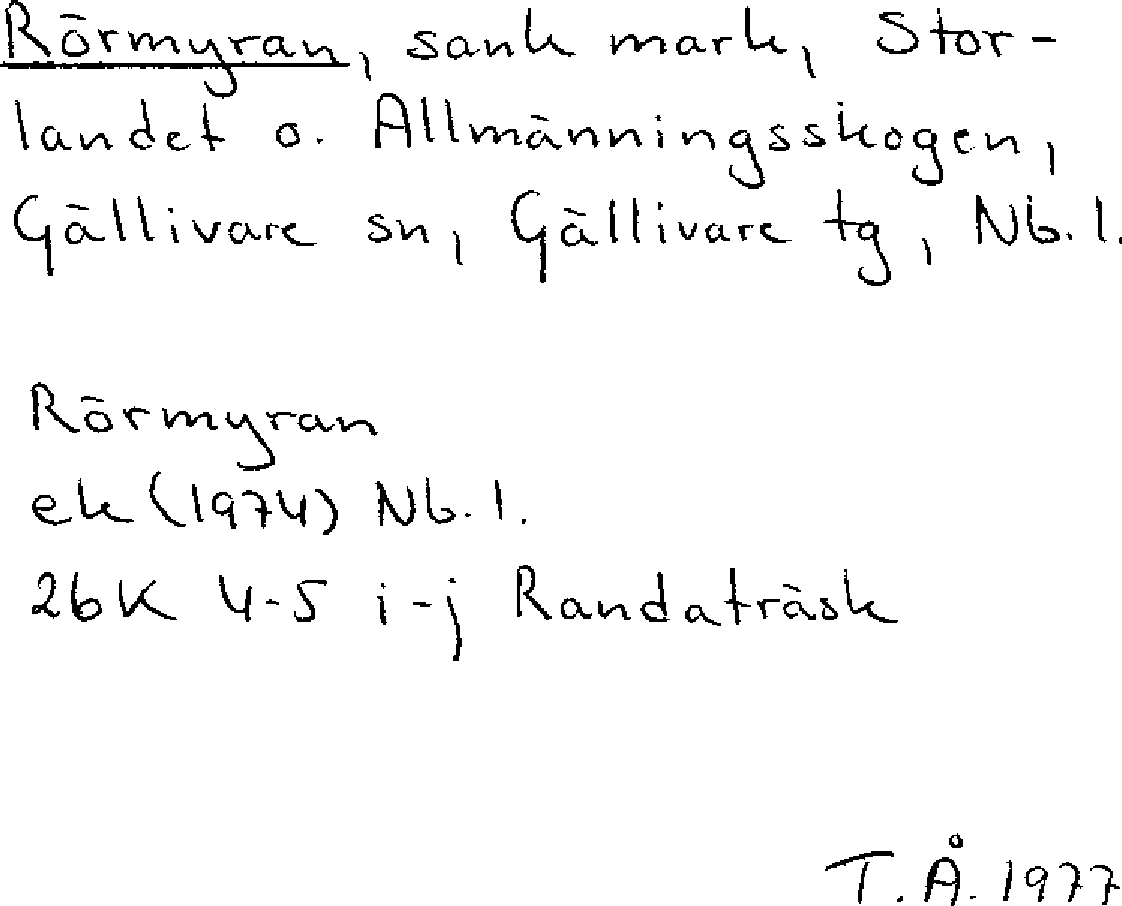 Rörmyran, sank mark, Stor-
landet o. Allmänningsskogen,
Gällivare sn, Gällivare tg, Nb. l.
Rörmyran
ek (1974) Nb. l.
26K 4-5 i-j Randaträsk
T. Å. 1977